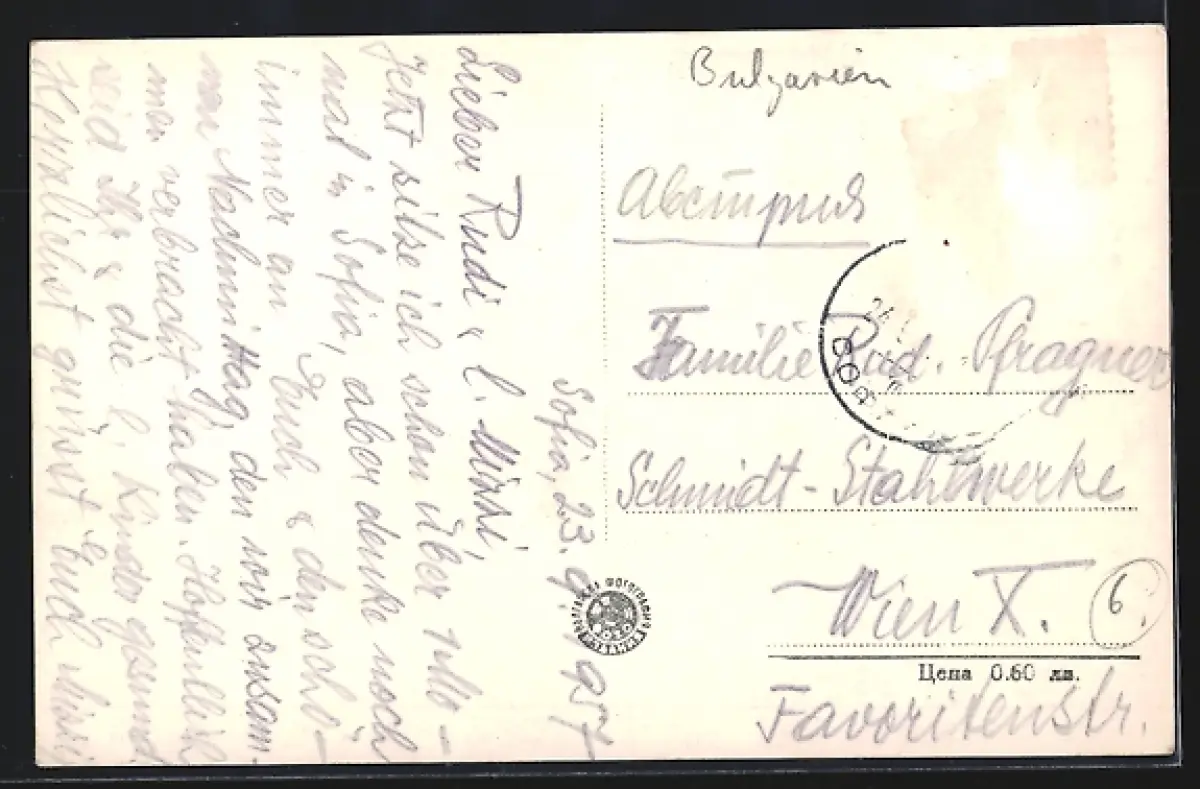 Sofia, 23. 9. 1957
Lieber Rudi & l. Mizzi,
Jetzt sitze ich schon über 1 Mo-
nat in Sofia, aber denke noch
immer an Euch & den schö-
nen Nachmittag, den wir zusam-
men verbracht haben. Hoffentlich
seid Ihr & die l. Kinder gesund.
Herzlichst grüsst Euch
Bulgarien
Австрия
Familie Rud. Pfragner
Schmidt-Stahlwerke
Wien X.
6
Цена 0.60 лв.
Favoritenstr.